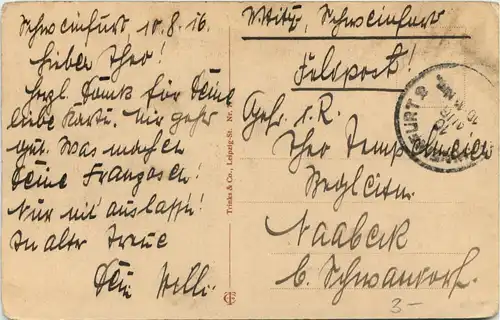 Schweinfurt, 10.8.16.
Lieber Theo!
Herzl. Dank für Deine
liebe Karte. Mir geht's
gut. Was machen
Deine Franzosen!
Nur nit auslassen!
In alter Treue
Dein Willi.
Trinks & Co., Leipzig-St. Nr.
Schweinfurt
Feldpost!
Theo
Naabeck
b. Schwandorf.
3-